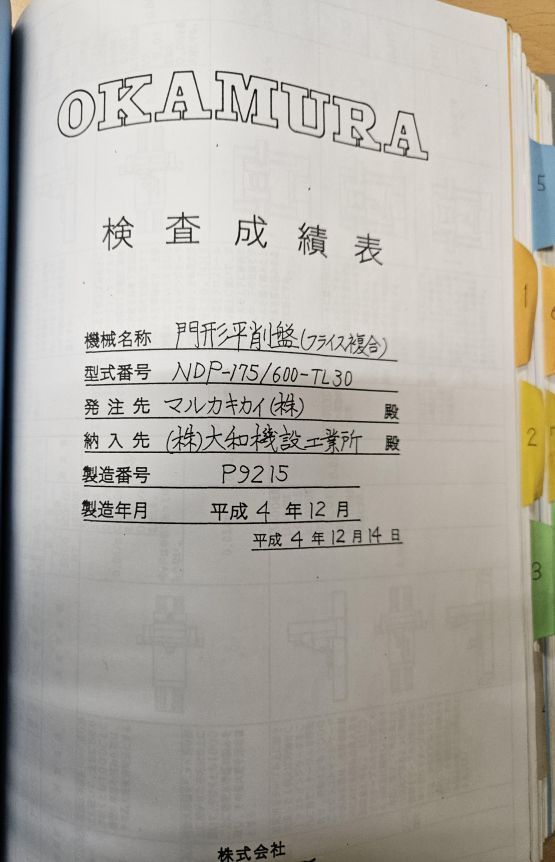 OKAMURA
検査成績表
機械名称 門形平削盤(フライス複合)
型式番号 NDP-175/600-TL30
発注先 マルカキカイ(株) 殿
納入先 (株)大和機設工業所 殿
製造番号 P9215
製造年月 平成 4 年 12 月
平成 4 年 12 月 14 日
株式会社
5
1
6
2
3